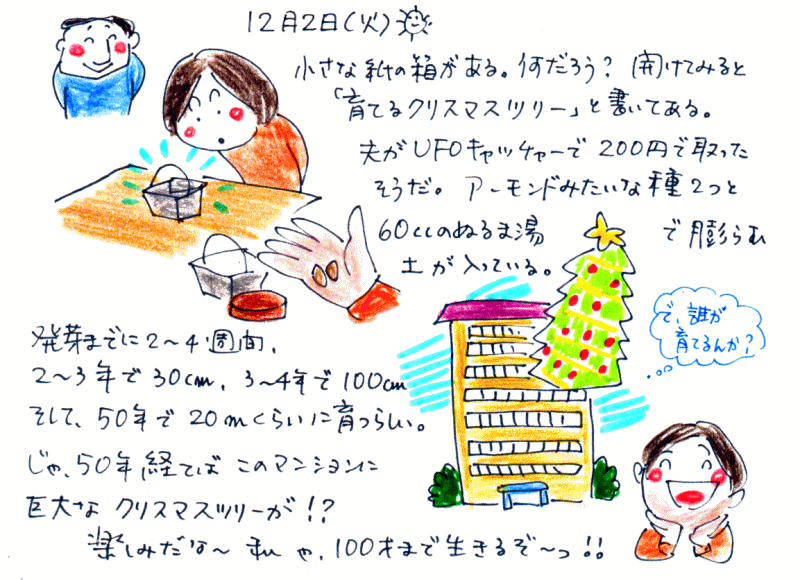 12月2日(火)
小さな紙の箱がある。何だろう? 開けてみると
「育てるクリスマスツリー」と書いてある。
夫がUFOキャッチャーで 200円で取った
そうだ。 アーモンドみたいな種2つと
60ccのぬるま湯で膨らむ
土が入っている。
発芽までに2〜4週間、
2〜3年で30cm、3〜4年で100cm
そして、50年で20mくらいに育つらしい。
じゃ、50年経てばこのマンションに
巨大なクリスマスツリーが!?
楽しみだな〜 私ゃ、100才まで生きるぞ〜っ!!
で、誰が
育てるんか?